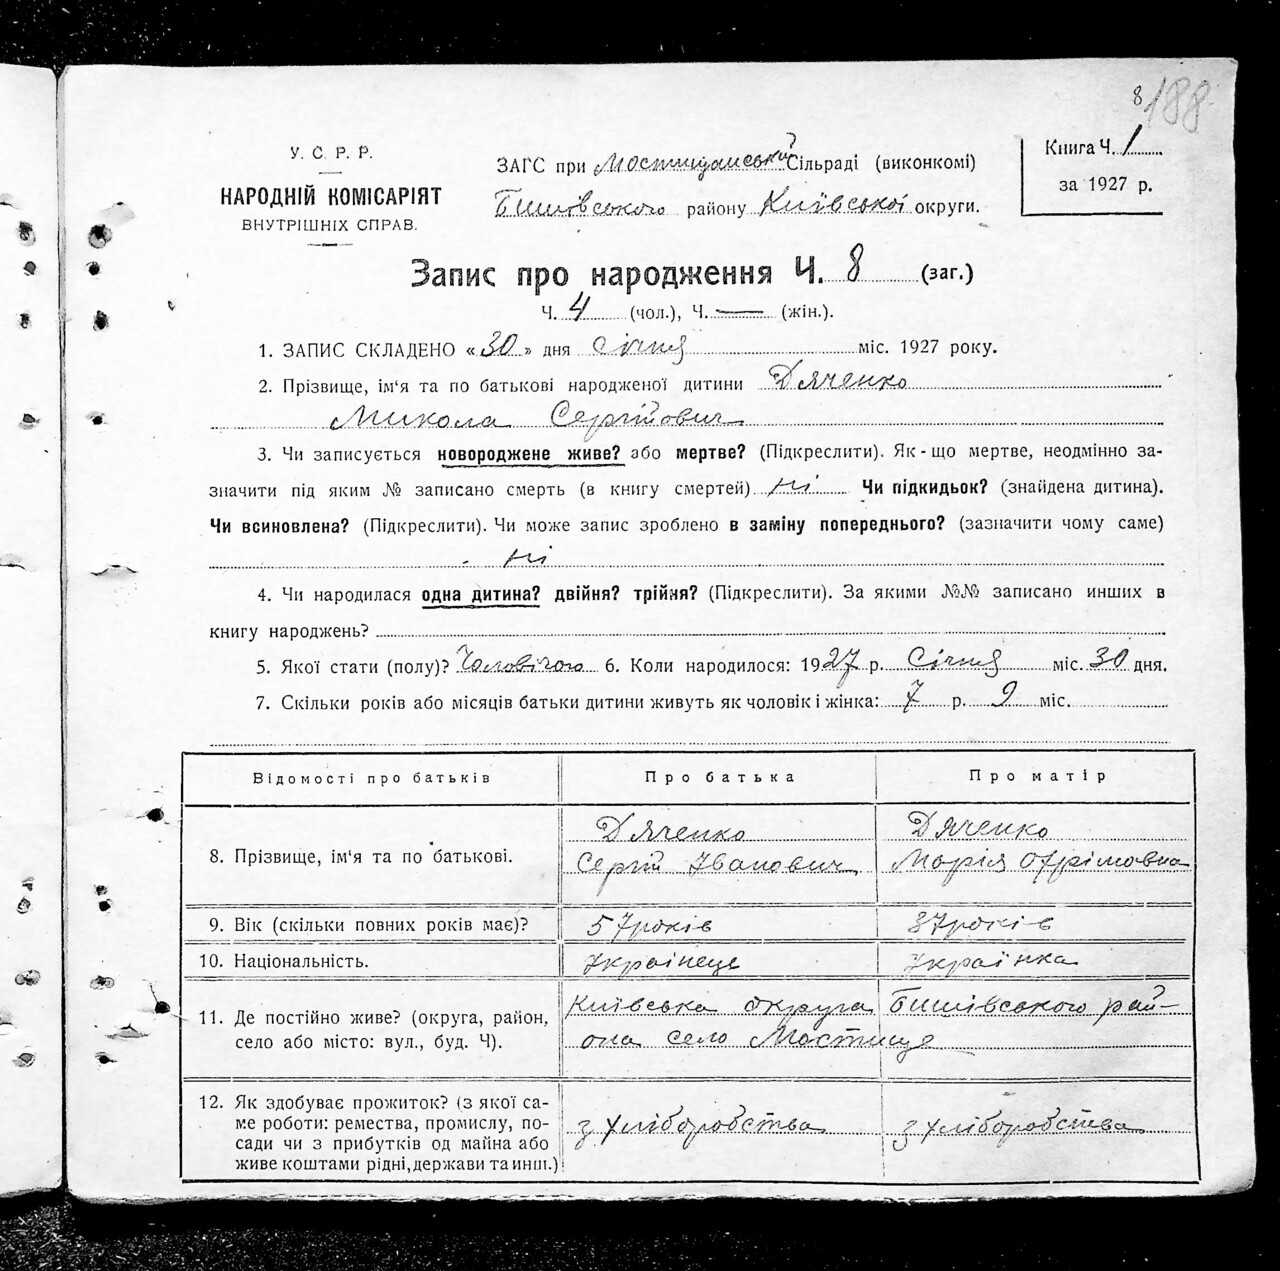 8
188
У. С. Р. Р.
НАРОДНІЙ КОМІСАРІЯТ
ВНУТРІШНІХ СПРАВ.
ЗАГС при Мостищанській Сільраді (виконкомі)
Бишівського району Київської округи.
Книга Ч. 1
за 1927 р.
Запис про народження Ч. 8 (заг.)
Ч. 4 (чол.), Ч. — (жін.).
1. ЗАПИС СКЛАДЕНО «30» дня січня міс. 1927 року.
2. Прізвище, ім'я та по батькові народженої дитини Дяченко
Микола Сергійович
3. Чи записується новороджене живе? або мертве? (Підкреслити). Як-що мертве, неодмінно за-
значити під яким № записано смерть (в книгу смертей) ні Чи підкидьок? (знайдена дитина).
Чи всиновлена? (Підкреслити). Чи може запис зроблено в заміну попереднього? (зазначити чому саме)
ні
4. Чи народилася одна дитина? двійня? трійня? (Підкреслити). За якими №№ записано инших в
книгу народжень?
5. Якої стати (полу)? Чоловічого 6. Коли народилося: 1927 р. Січня міс. 30 дня.
7. Скільки років або місяців батьки дитини живуть як чоловік і жінка: 7 р. 9 міс.
Відомості про батьків Про батька Про матір
8. Прізвище, ім'я та по батькові. Дяченко Сергій Іванович Дяченко Марія Охрімовна
9. Вік (скільки повних років має)? 57 років 37 років
10. Національність. Українець Українка
11. Де постійно живе? (округа, район, Київська округа Бишівського рай-
село або місто: вул., буд. Ч). она село Мостище
12. Як здобуває прожиток? (з якої са-
ме роботи: ремества, промислу, по-
сади чи з прибутків од майна або
живе коштами рідні, держави та инш.)
з хліборобства з хліборобства